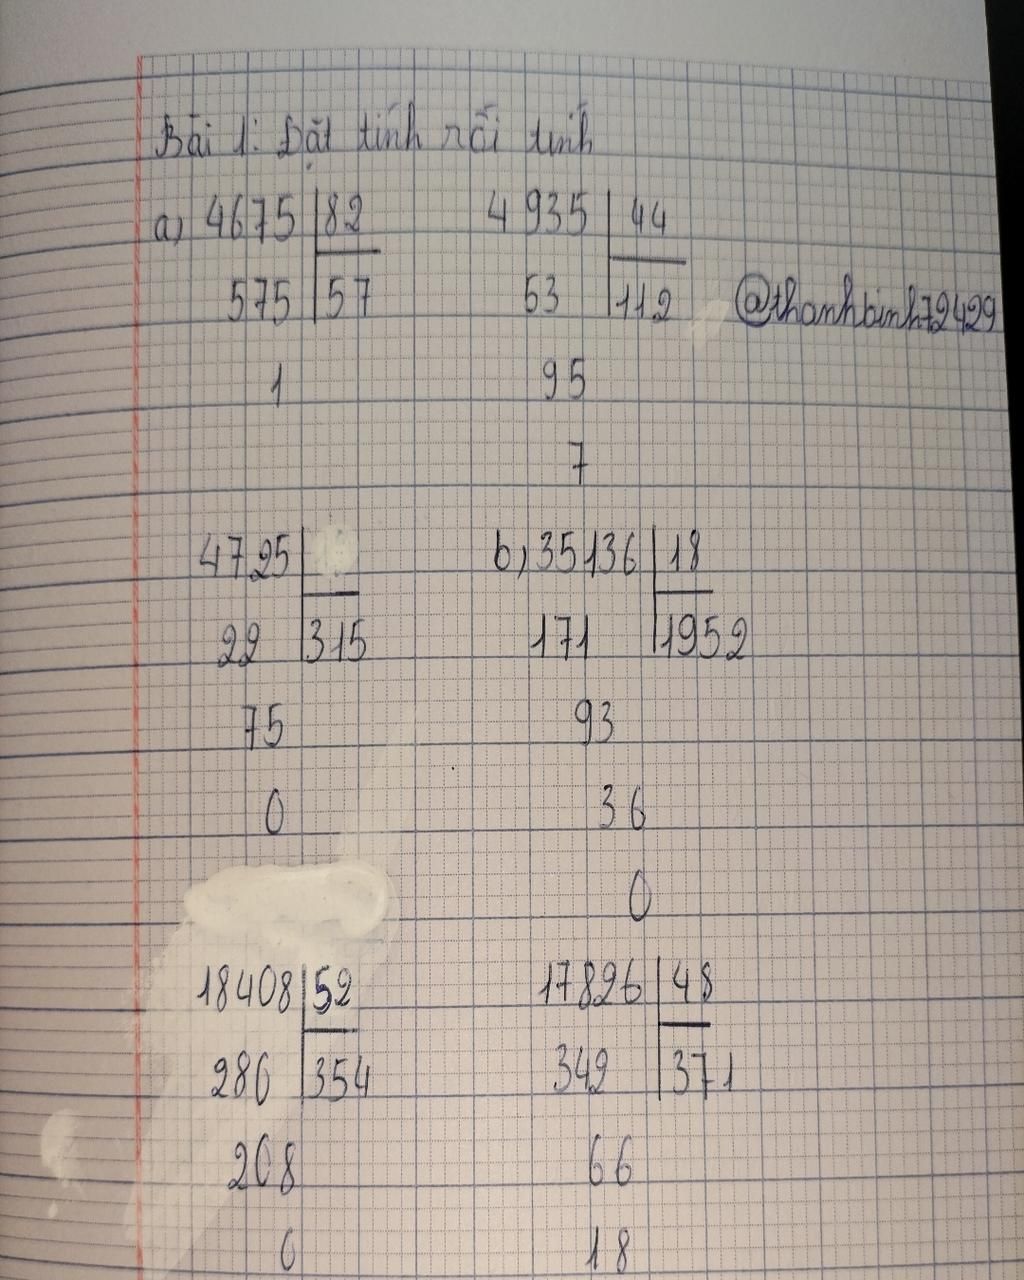 Bài 1: Đặt tính rồi tính
a, 4675 82
575 57
1
4935 44
53 112
95
7
@thanhbinh72429
4725
22 315
75
0
b, 35136 18
171 1952
93
36
0
18408 52
286 354
208
0
17826 48
342 371
66
18